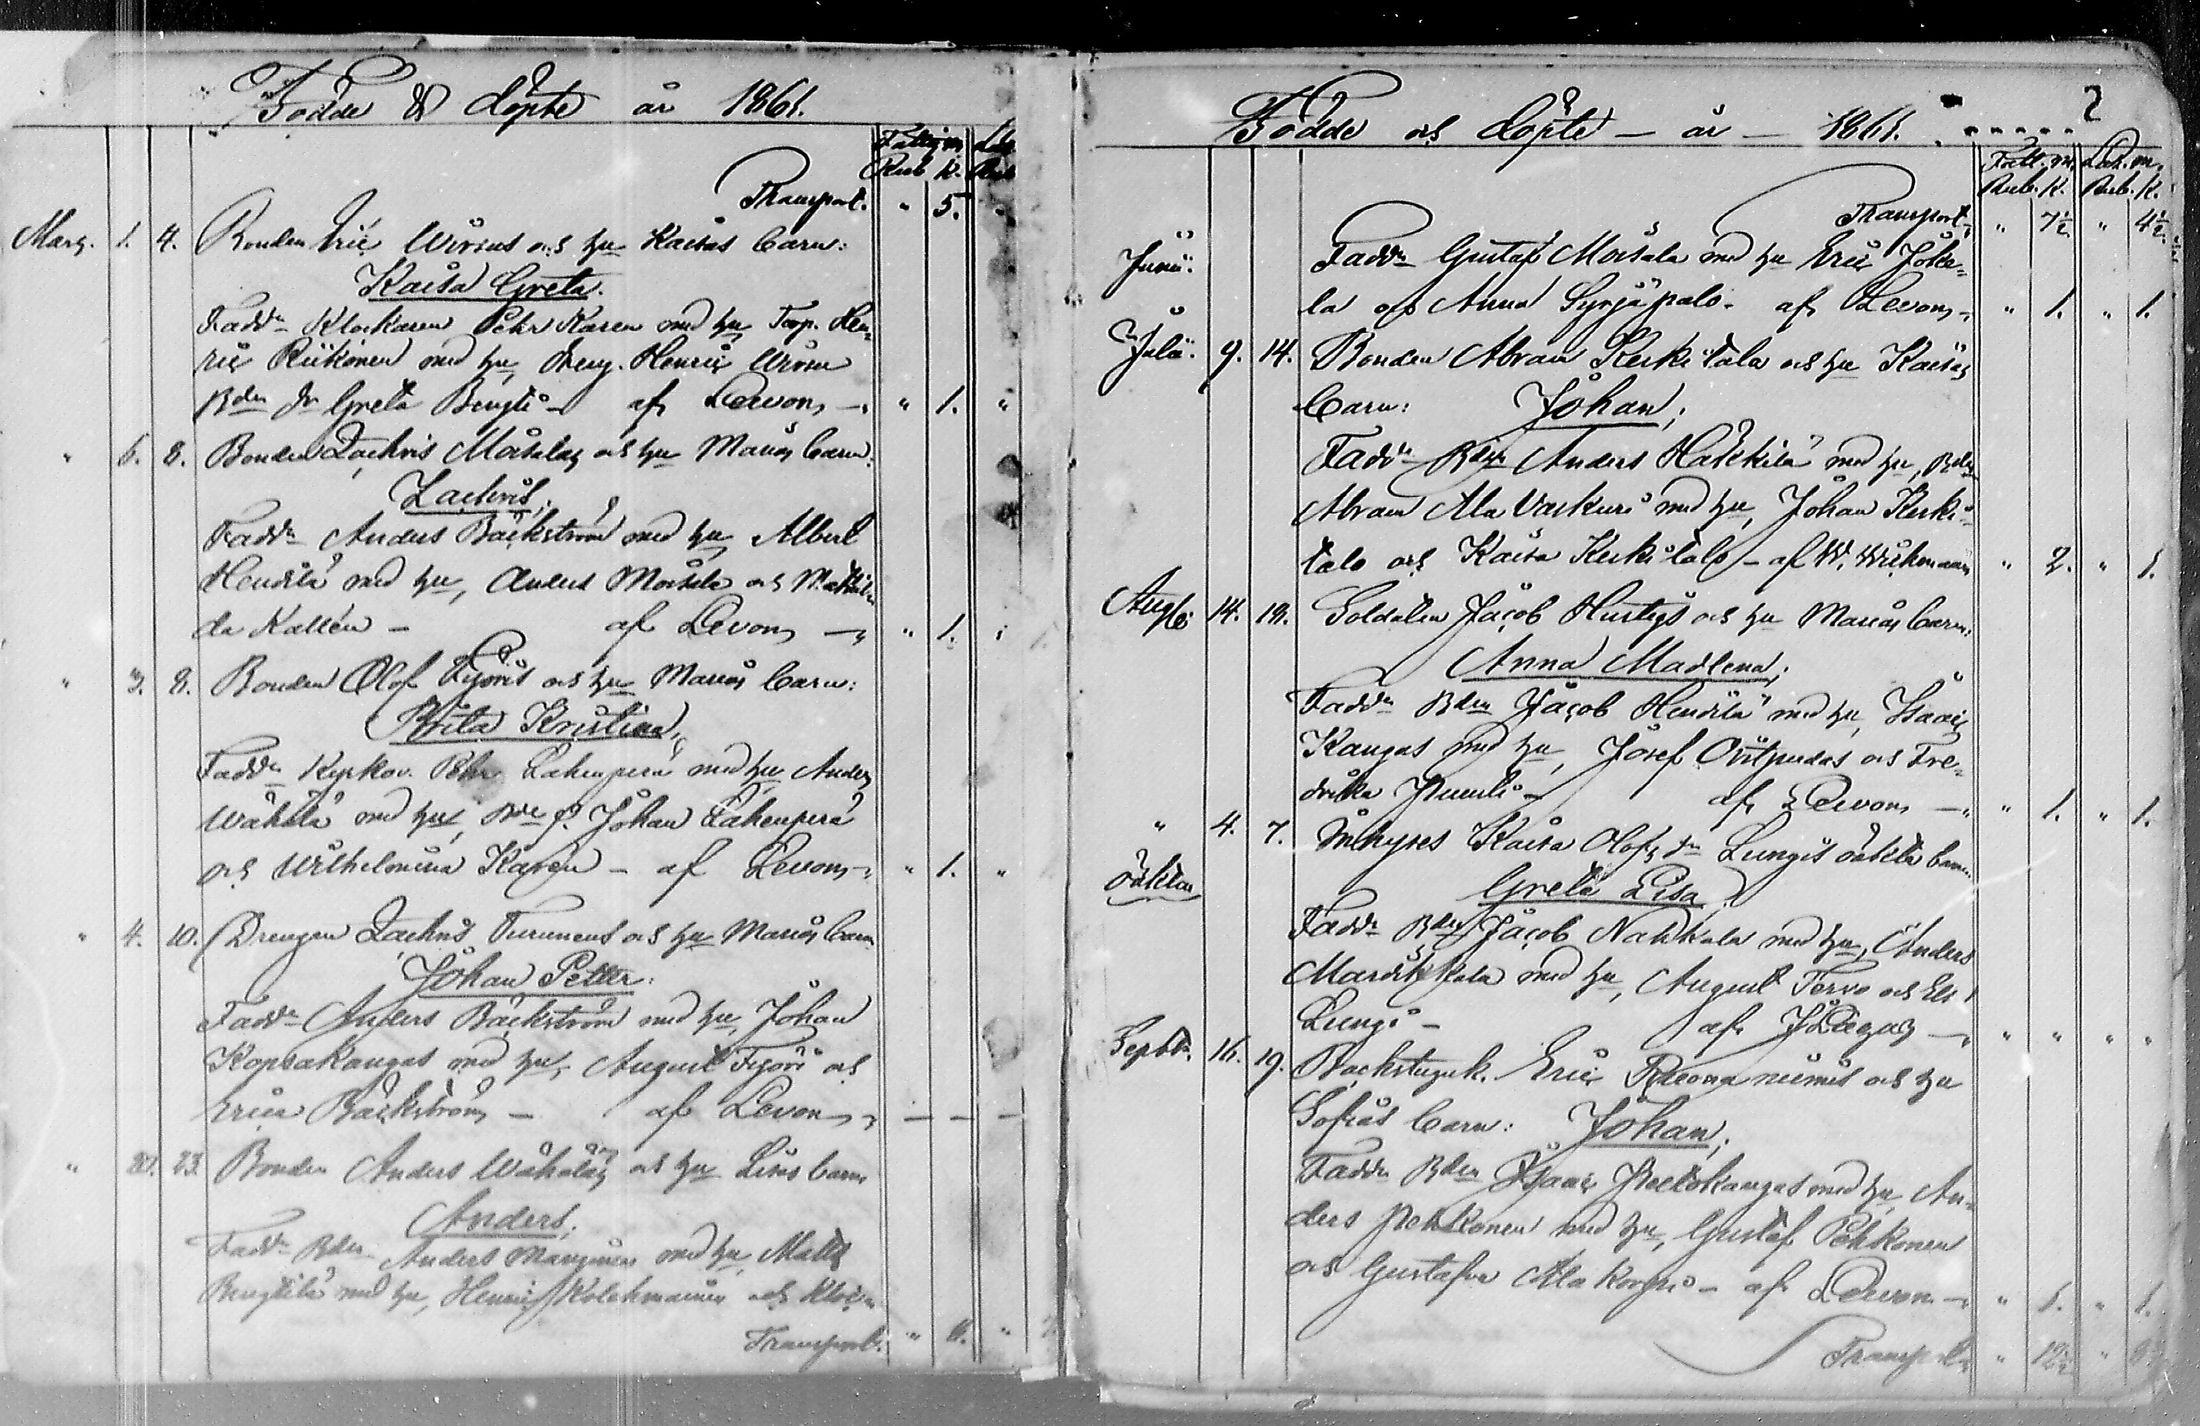 Födde & döpte år 1861.
Rub K.
Transport. " 5. "
Mars. 1. 4. Bonden Eric Wirius och hu Kaisas barn:
Kaisa Greta.
Fadd. Klockaren Pehr Karen med hu, Torp. Hen-
ric Riikonen med hu, dreng. Henric
Greta Bengti - af Levon " 1. "
" 6. 8. Bonden Zachris Moisalas och hu Marias barn:
Zachris.
Fadd. Anders Bäckström med hu, Albert
Hendilä med hu, Anders Moisala och Mathil-
da Kallén - af Levon " 1.
" 3. 8. Bonden Olof Typöris och hu Marias barn:
Brita Kristina,
Fadd. Kyrkov. Pehr Lahenperä med hu Anders
Wähälä med hu, Johan Lahenperä
och Wilhelmina Karen - af Levon " 1. "
" 4. 10. Drengen Zachris Turunens och hu Marias barn
Johan Petter.
Fadd. Anders Bäckström med hu, Johan
Kopsakangas med hu, August Typöri och
Erica Bäckström - af Levon — — —
" 21. 23. Bonden Anders Wähäläs och hu Lisas barn
Anders.
Fadd. Bden Anders Manninen med hu, Matts
Bengtilä med hu, Henric Kolehmainen och
Transport: "
2
Födde och döpte - år - 1861.
Fatt. m. Laz. m.
Rub. K. Rub. K.
Transport, " 7½ " 4½
Junii. Fadd. Gustaf Moisala med hu Eric Joke-
la och Anna Syrjäpalo - af Levon " 1. " 1.
Julii. 9. 14. Bonden Abram Kerkitalos och hu Kaisas
Barn: Johan,
Fadd. Bden Anders Hakkilä med hu, Bden
Abram Ala Vaskuri med hu, Johan Kerki-
talo och Kaisa Kerkitalo - af W. Wichmann " 2. " 1.
Aug. 14. 18. Soldaten Jacob Hurtigs och hu Marias barn:
Anna Madlena,
Fadd. Bden Jacob Hendilä med hu, Isaac
Kangas med hu, Josef Ovitjudas och Fre-
drika - af Levon " 1. " 1.
" 4. 7. Inhyses Kaisa Olofs dr Lungis oäkta barn
oäkta Greta Lisa.
Fadd. Bden Jacob Nahkala med hu, Anders
Marsikkala med hu, August Tervo och Els
Lungi - af J Lagus " " " "
Septbr. 16. 19. Backstuguk. Eric Raeona niemis och hu
Sofias Barn: Johan,
Fadd. Bden Isaac Peltokangas med hu, An-
ders Pehkonen med hu, Gustaf Pehkonen
och Gustafva Ala Korpi - af Levon " 1. " 1.
Transport " 12½ "